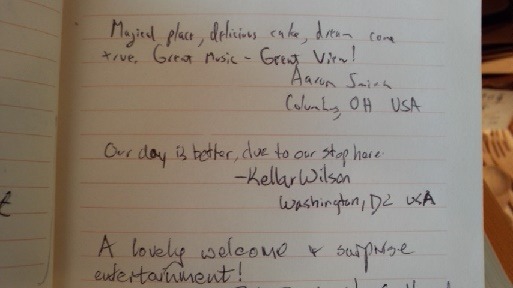 Magical place, delicious cake, dream come
true. Great Music - Great View!
Aaron Smith
Columbus, OH USA
Our day is better, due to our stop here.
-Kellar Wilson
Washington, DC USA
A lovely welcome & surprise
entertainment!